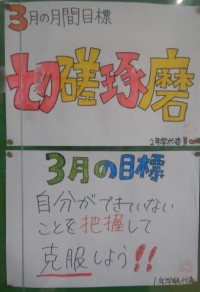 3月の月間目標
切磋琢磨
2年学代委員
3月の目標
自分ができていない
ことを把握して
克服しよう!!